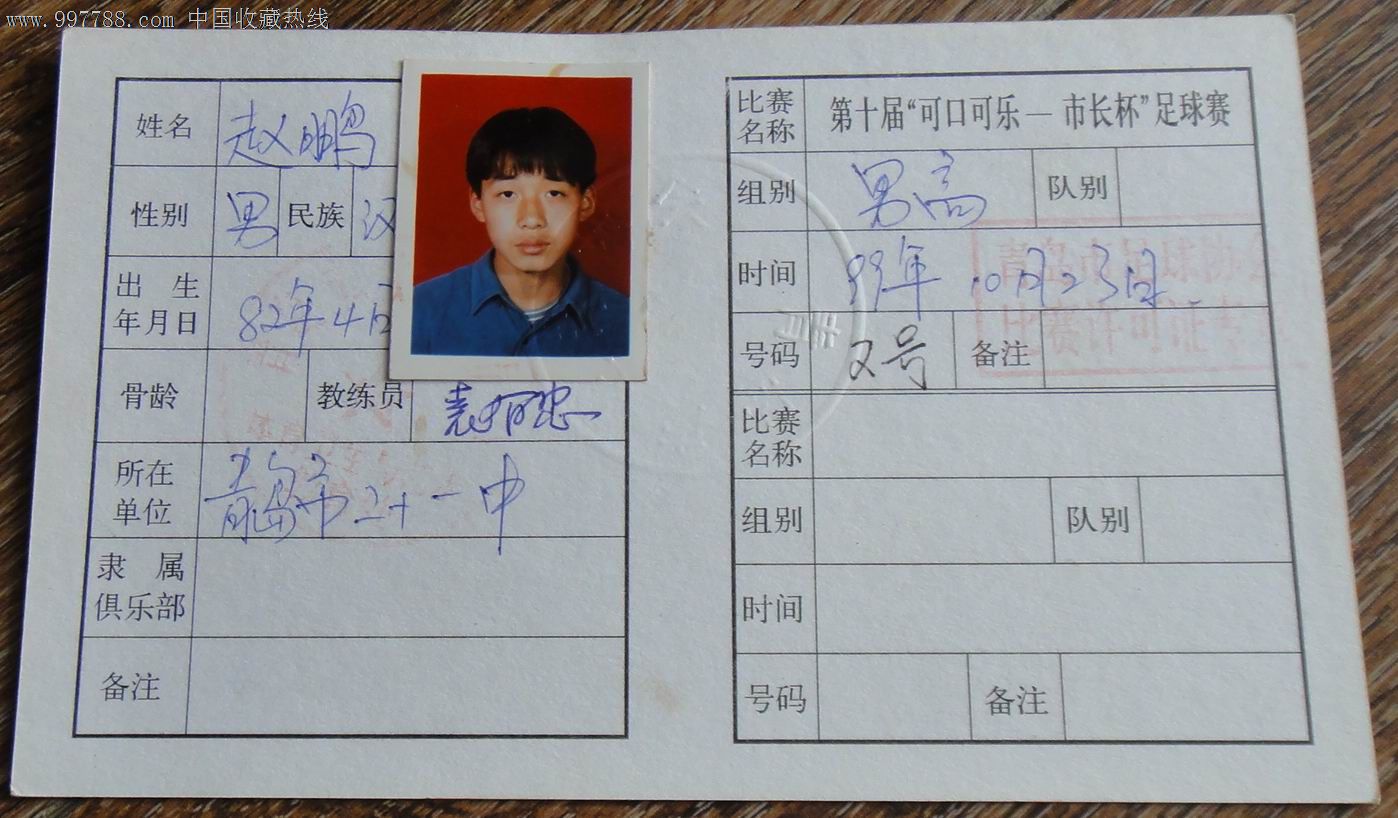 www.997788.com 中国收藏热线
姓名 赵鹏
性别 男 民族 汉
出生年月日 82年4月
骨龄 教练员
所在单位 青岛市二十一中
隶属俱乐部
备注
比赛名称 第十届“可口可乐—市长杯”足球赛
组别 男高 队别
时间 99年10月23日
号码 2号 备注
青岛市足球协会
比赛许可证专
比赛名称
组别 队别
时间
号码 备注